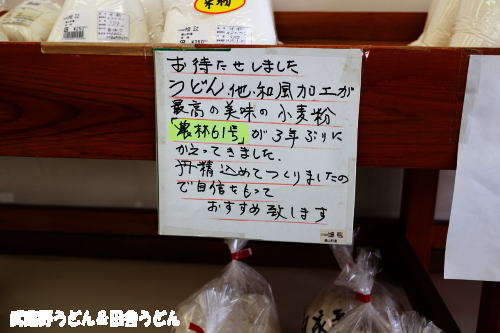 お待たせしました
うどん、他、和風加工が
最高の美味の小麦粉
「農林61号」が3年ぶりに
かえってきました。
丹精込めてつくりましたの
で自信をもって
おすすめ致します
武蔵野うどん&田舎うどん